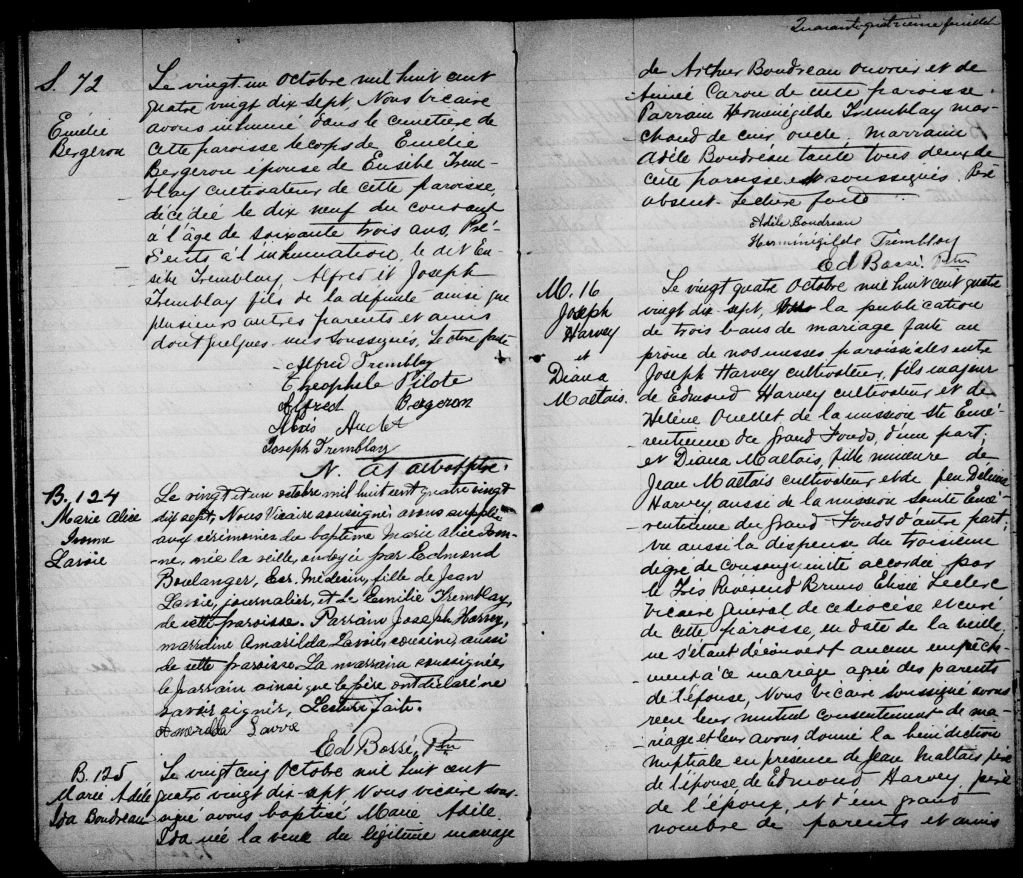 S. 72
Emélie
Bergeron
Le vingt un Octobre mil huit cent
quatre vingt dix sept, Nous vicaire
avons inhumé dans le cimetière de
cette paroisse le corps de Emélie
Bergeron épouse de Eusèbe Trem-
blay cultivateur de cette paroisse,
décédée le dix neuf du courant
à l'âge de soixante trois ans. Pré-
sents à l'inhumation, le dit Eu-
sèbe Tremblay, Alfred et Joseph
Tremblay fils de la défunte ainsi que
plusieurs autres parents et amis
dont quelques-uns soussignés. Lecture faite
Alfred Tremblay
Théophile Pilote
Alfred Bergeron
Audet
Joseph Tremblay
B. 124
Marie Alice
Ivonne
Lavoie
Le vingt et un octobre mil huit cent quatre vingt
dix sept, Nous Vicaire soussigné avons supplée
aux cérémonies du baptême Marie Alice Ivon-
ne, née la veille, ondoyée par Edmond
Boulanger, Ecr. Médecin, fille de Jean
Lavoie, journalier, et de Emilie Tremblay,
de cette paroisse. Parrain Joseph Harvey,
marraine Amarilda Lavoie, cousine, aussi
de cette paroisse. La marraine soussignée,
le parrain ainsi que le père ont déclaré ne
savoir signer, Lecture faite.
Amerilda Lavoie
Ed Bossé, Ptre
B. 125
Marie Adèle
Ida Boudreau
Le vingt cinq Octobre mil huit cent
quatre vingt dix-sept Nous vicaire sous-
signé avons baptisé Marie Adèle
Ida née la veille du légitime mariage
Quarante-quatrième feuillet
de Arthur Boudreau ouvrier et de
Aimée Caron de cette paroisse.
Parrain Herménégilde Tremblay mar-
chand de cuir, oncle, marraine
Adèle Boudreau tante tous deux de
cette paroisse et soussignés. Père
absent. Lecture faite
Adèle Boudreau
Herménégilde Tremblay
Ed Bossé, Ptre
M. 16
Joseph
Harvey
et
Diana
Maltais.
Le vingt quatre Octobre mil huit cent quatre
vingt dix-sept, vu la publication
de trois bans de mariage faite au
prône de nos messes paroissiales entre
Joseph Harvey cultivateur, fils majeur
de Edmond Harvey cultivateur et de
Hélène Ouellet de la mission Ste Emé-
rentienne du Grand Fonds, d'une part;
et Diana Maltais, fille mineure de
Jean Maltais cultivateur et de feu Delvina
Harvey, aussi de la mission Sainte Emé-
rentienne du Grand Fonds d'autre part;
vu aussi la dispense du troisième
degré de consanguinité accordée par
le Très Révérend Bruno Elisée Leclerc
vicaire général de ce diocèse et curé
de cette paroisse, en date de la veille,
ne s'étant découvert aucun empêche-
ment à ce mariage agréé des parents
de l'épouse, Nous vicaire soussigné avons
reçu leur mutuel consentement de ma-
riage et leur avons donné la bénédiction
nuptiale en présence de Jean Maltais père
de l'épouse, de Edmond Harvey, père
de l'époux, et d'un grand
nombre de parents et amis